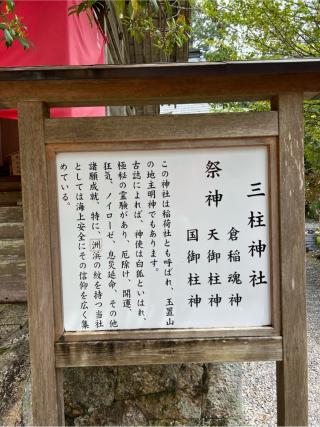 三柱神社
倉稲魂神
祭神 天御柱神
国御柱神
この神社は稲荷社とも呼ばれ、玉置山
の地主明神でもあります。
古誌によれば、神使は白狐といはれ、
極秘の霊験があり、厄除け、開運、
狂気、ノイローゼ、息災延命、その他
諸願成就、特に、洲浜の紋を持つ当社
としては海上安全にその信仰を広く集
めている。